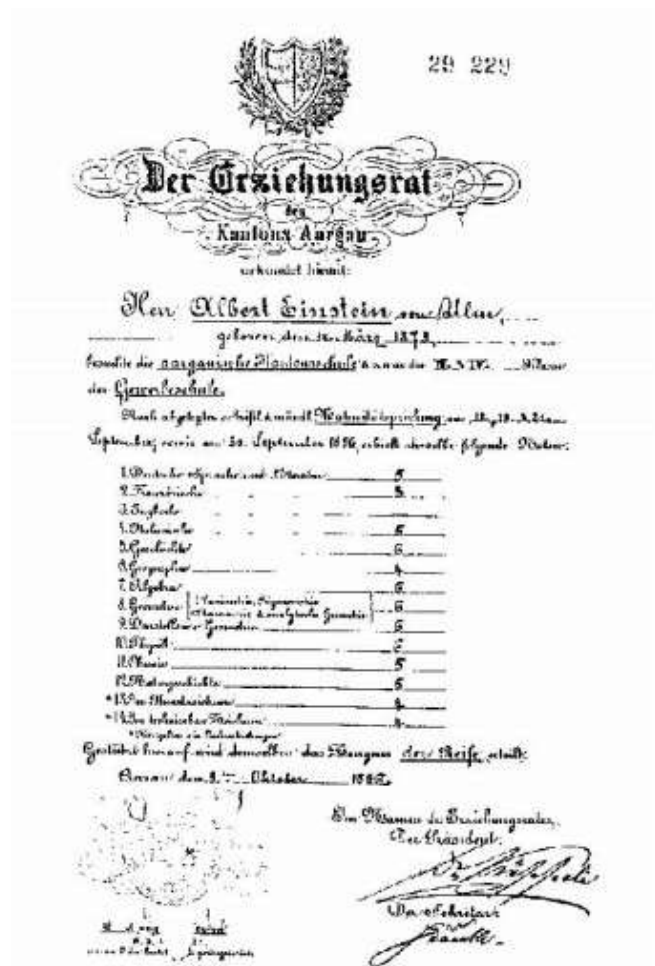 29 229
Der Erziehungsrat
des
Kantons Aargau
urkundet hiemit:
Herr Albert Einstein von Ulm,
geboren den 14. März 1879,
besuchte die aargauische Kantonsschule & zwar die III. & IV. Klasse
der Gewerbeschule.
Nach abgelegter schriftl. & mündl. Maturitätsprüfung am 18., 19. & 21.
September, sowie am 30. September 1896, erhielt derselbe folgende Noten:
1. Deutsche Sprache und Litteratur 5
2. Französische " " " 3
3. Englische " " "
4. Italienische " " " 5
5. Geschichte 6
6. Geographie 4
7. Algebra 6
8. Geometrie Planimetrie, Trigonometrie 6
Stereometrie & analytische Geometrie
9. Darstellende Geometrie 6
10. Physik 6
11. Chemie 5
12. Naturgeschichte 5
* 13. Im Kunstzeichnen 4
* 14. Im technischen Zeichnen 4
Gestützt hierauf wird demselben das Zeugnis der Reife erteilt.
Aarau den 3. Oktober 1896.
Im Namen des Erziehungsrates,
Der Präsident:
Der Sekretär: